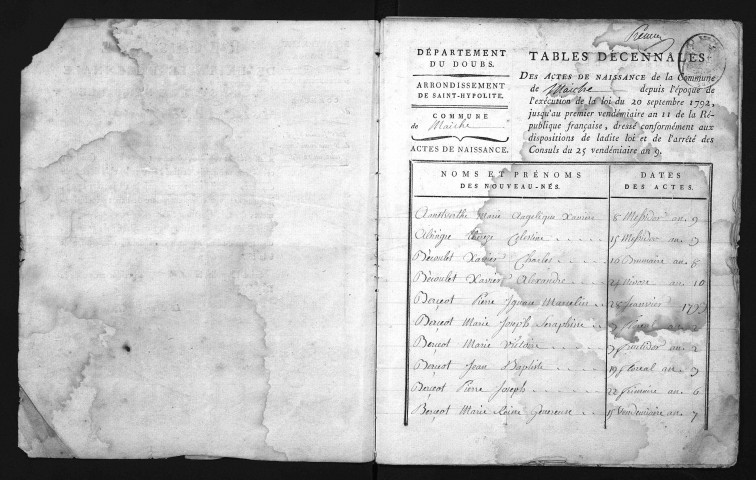 DÉPARTEMENT
DU DOUBS.
ARRONDISSEMENT
DE SAINT-HYPOLITE.
COMMUNE
de Maîche
ACTES DE NAISSANCE.
TABLES DÉCENNALES
DES ACTES DE NAISSANCE de la Commune
de Maîche depuis l'époque de
l'exécution de la loi du 20 septembre 1792,
jusqu'au premier vendémiaire an 11 de la Ré-
publique française, dressé conformément aux
dispositions de ladite loi et de l'arrêté des
Consuls du 25 vendémiaire an 9.
NOMS ET PRÉNOMS
DES NOUVEAU-NÉS.
DATES
DES ACTES.
Marie Angelique 8 Messidor an 9
Celestine 15 Messidor an
Bécoulet Xavier Charles 16 Brumaire an 6
Bécoulet Xavier Alexandre 24 Nivose an 10
Berçot Pierre Ignace Marcelin 28 Janvier 1793
Berçot Marie Joseph Seraphine
Berçot Marie fructidor an 2
Berçot Jean Baptiste 19 floreal an
Berçot Pierre Joseph 22 frimaire an 6
Berçot Marie Reine Genereuse Vendemiaire an 7